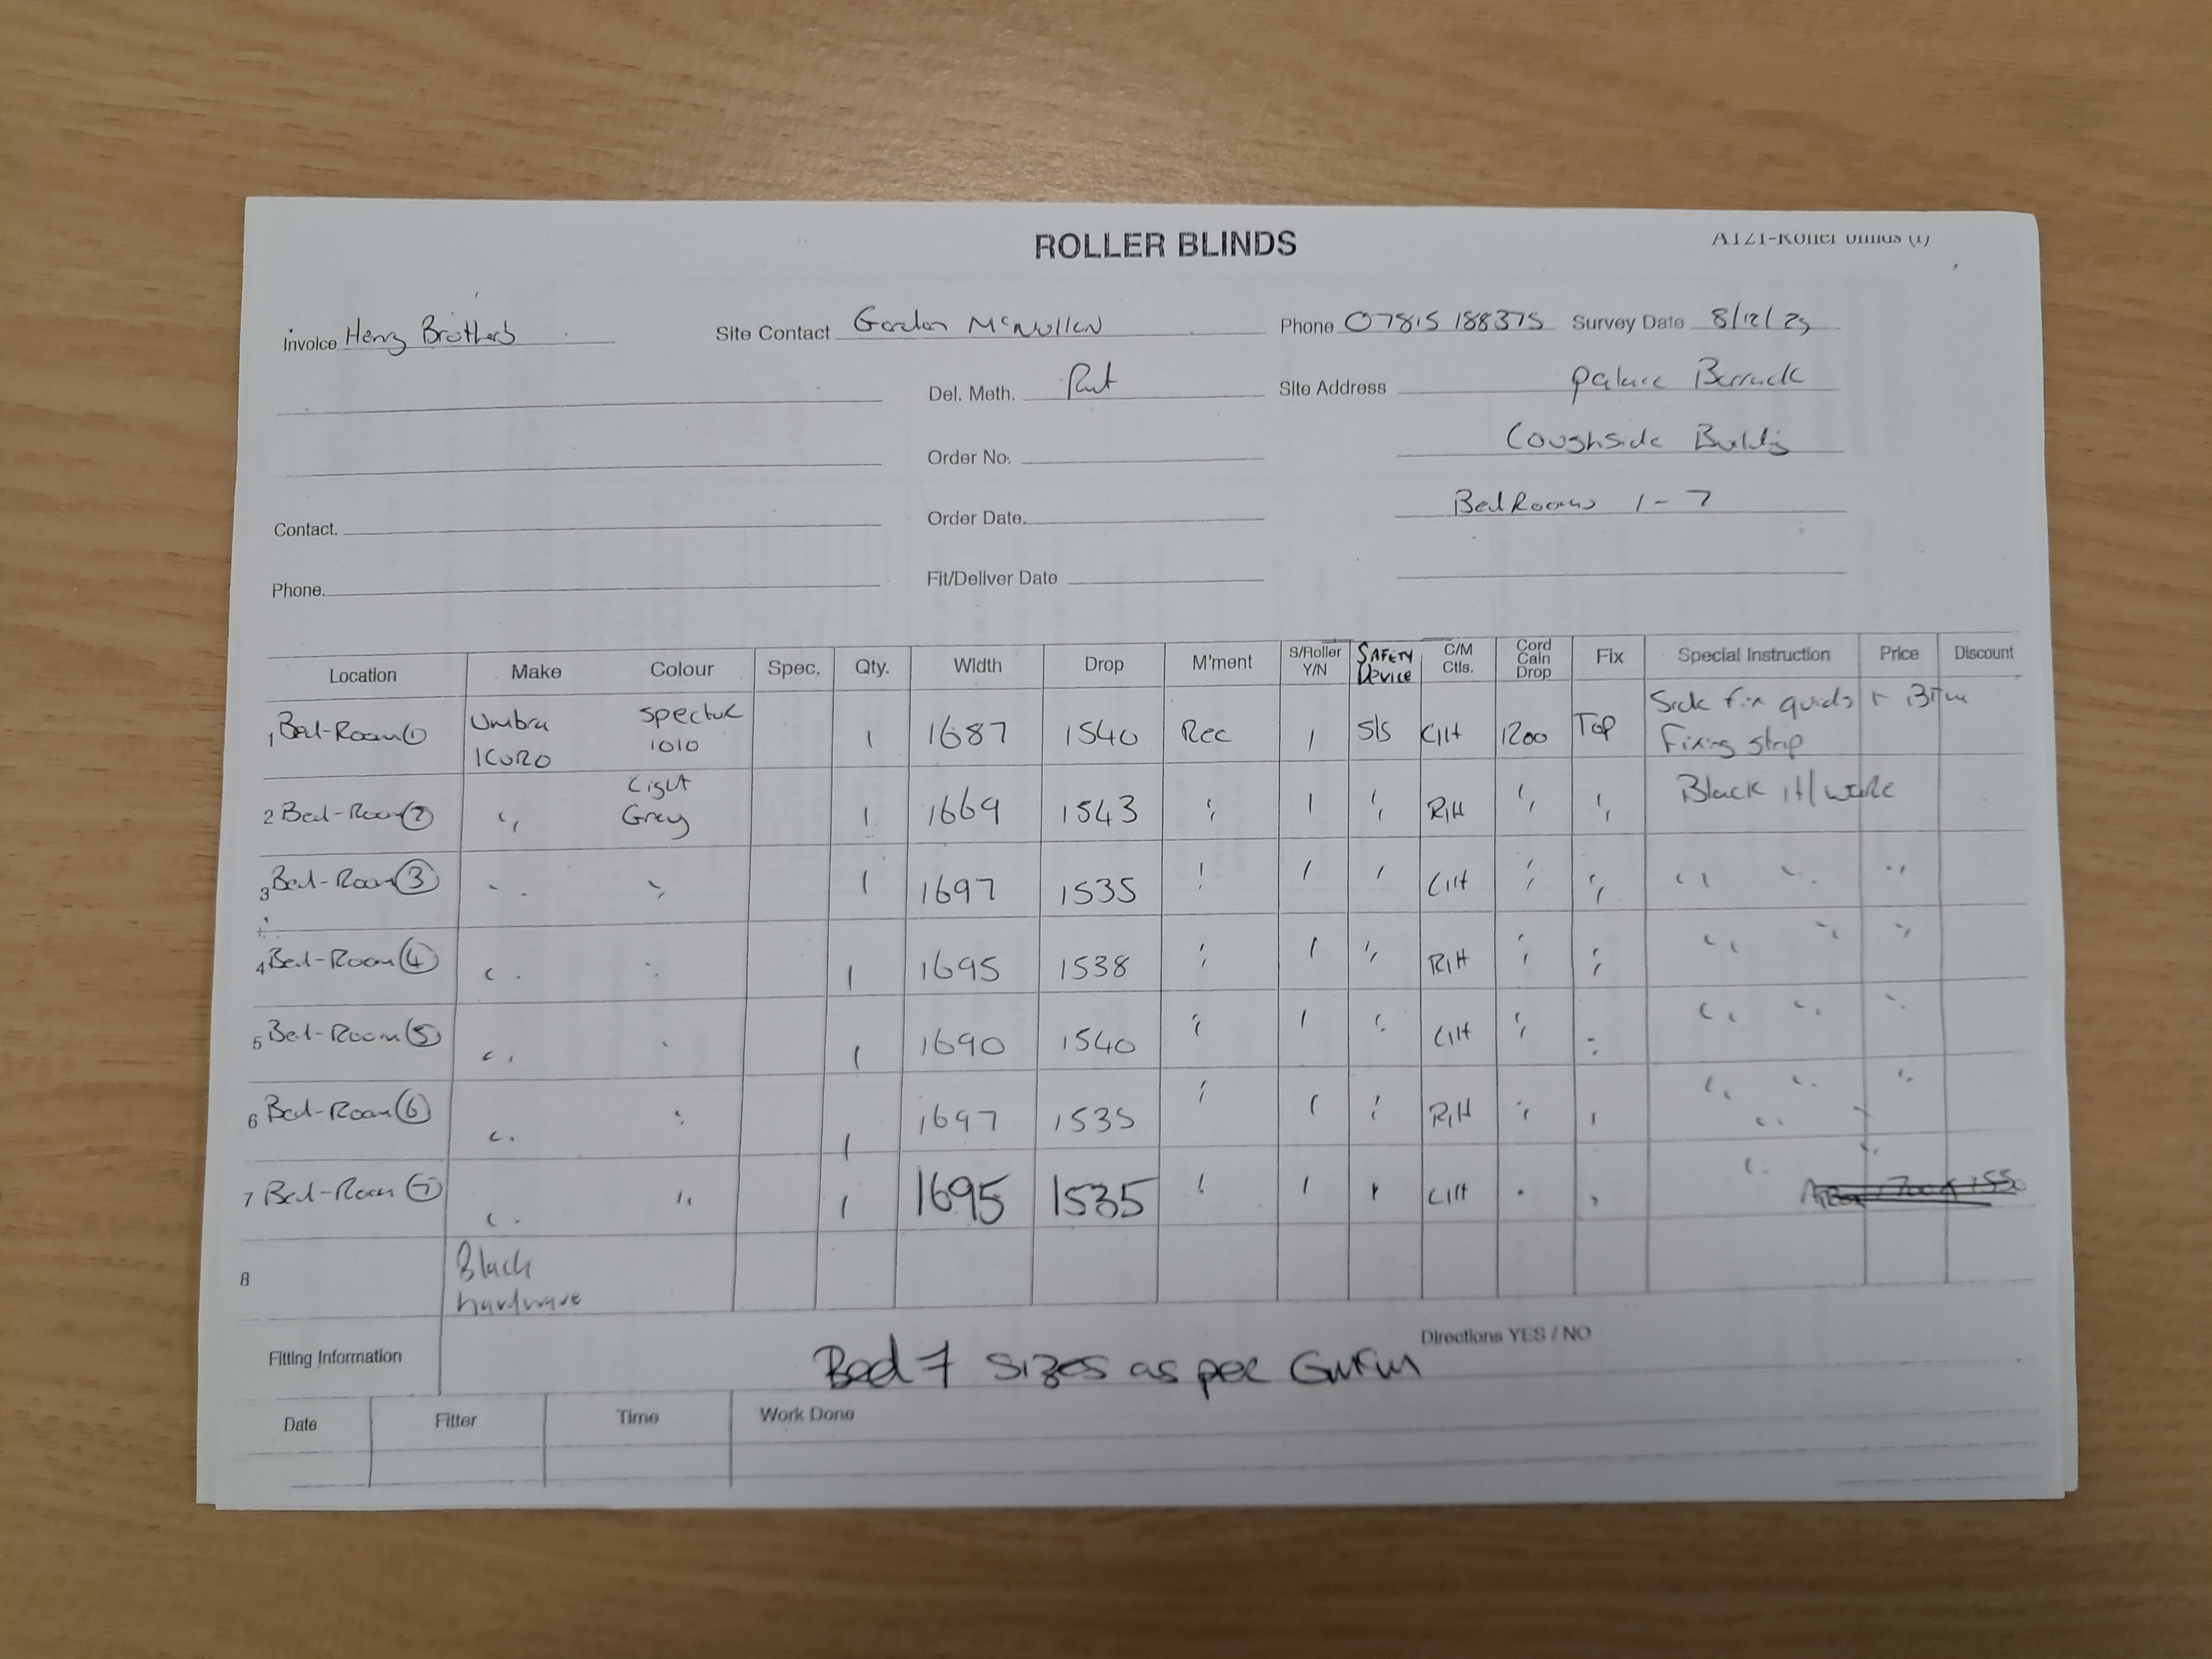 ROLLER BLINDS
A121-Roller blinds (1)
Invoice Henry Brothers Site Contact Gordon McMullen Phone 07815 188375 Survey Date 8/12/25
Del. Meth. Site Address Palace Barrack
Order No. Loughside Building
Contact. Order Date. BedRooms 1-7
Phone. Fit/Deliver Date
Location Make Colour Spec. Qty. Width Drop M'ment S/Roller Y/N SAFETY Device C/M Ctls. Cord Cain Drop Fix Special Instruction Price Discount
1 Bed-Room 1 Umbra KURO Spectur 1010 1 1687 1540 Rec 1 S/S L/H 1200 Top Side fix guids + Btm Fixing strip
2 Bed-Room 2 " Light Grey 1 1669 1543 " 1 " R/H " " Black H/ware
3 Bed-Room 3 " " 1 1697 1535 " 1 " L/H " " " " "
4 Bed-Room 4 " " 1 1695 1538 " 1 " R/H " " " " "
5 Bed-Room 5 " " 1 1690 1540 " 1 " L/H " " " " "
6 Bed-Room 6 " " 1 1697 1535 " 1 " R/H " " " " "
7 Bed-Room 7 " " 1 1695 1535 " 1 " L/H " " "
8 Black hardware
Fitting Information Directions YES / NO
Bed 7 sizes as per
Date Fitter Time Work Done